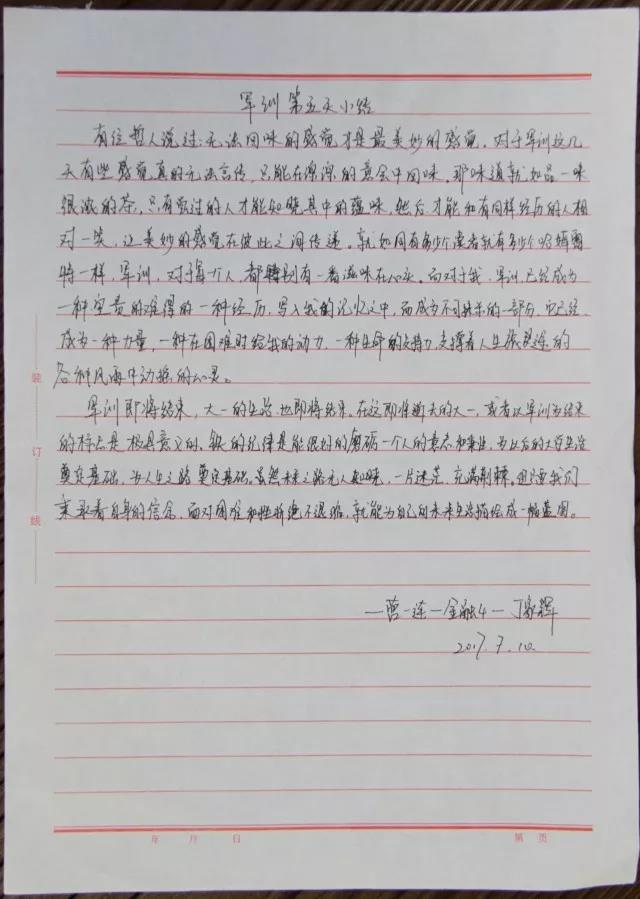 军训第五天小结
有位哲人说过：无法回味的感觉才是最美妙的感觉。对于军训这几
天有些感觉真的无法言传，只能在深深的意会中回味。那味道就如品一味
很浓的茶，只有尝过的人才能知晓其中的蕴味，然后才能和有同样经历的人相
对一笑，让美妙的感觉在彼此之间传递。就如同有多少个读者就有多少个哈姆雷
特一样，军训，对于每个人，都特别有一番滋味在心头。而对于我，军训已经成为
一种宝贵的难得的一种经历，写入我的记忆之中，而成为不可缺的一部分，它已经
成为一种力量，一种在困难时给我的动力，一种生命的支持力，支撑着人生旅途的
各种风雨中动摇的心灵。
军训即将结束，大一的生活也即将结束。在这即将逝去的大一，或者以军训为结束
的标志是极具意义的。铁的纪律是能很好的磨砺一个人的意志和秉性，为以后的大学生活
奠定基础，为人生之路奠定基础。虽然未来之路无人知晓，一片迷茫，充满荆棘。但只要我们
秉承着自身的信念，面对困难和挫折绝不退缩，就能为自己的未来生活描绘成一幅蓝图。
一营一连一金融4一丁家辉
2017.7.10
装
订
线
年 月 日
第 页